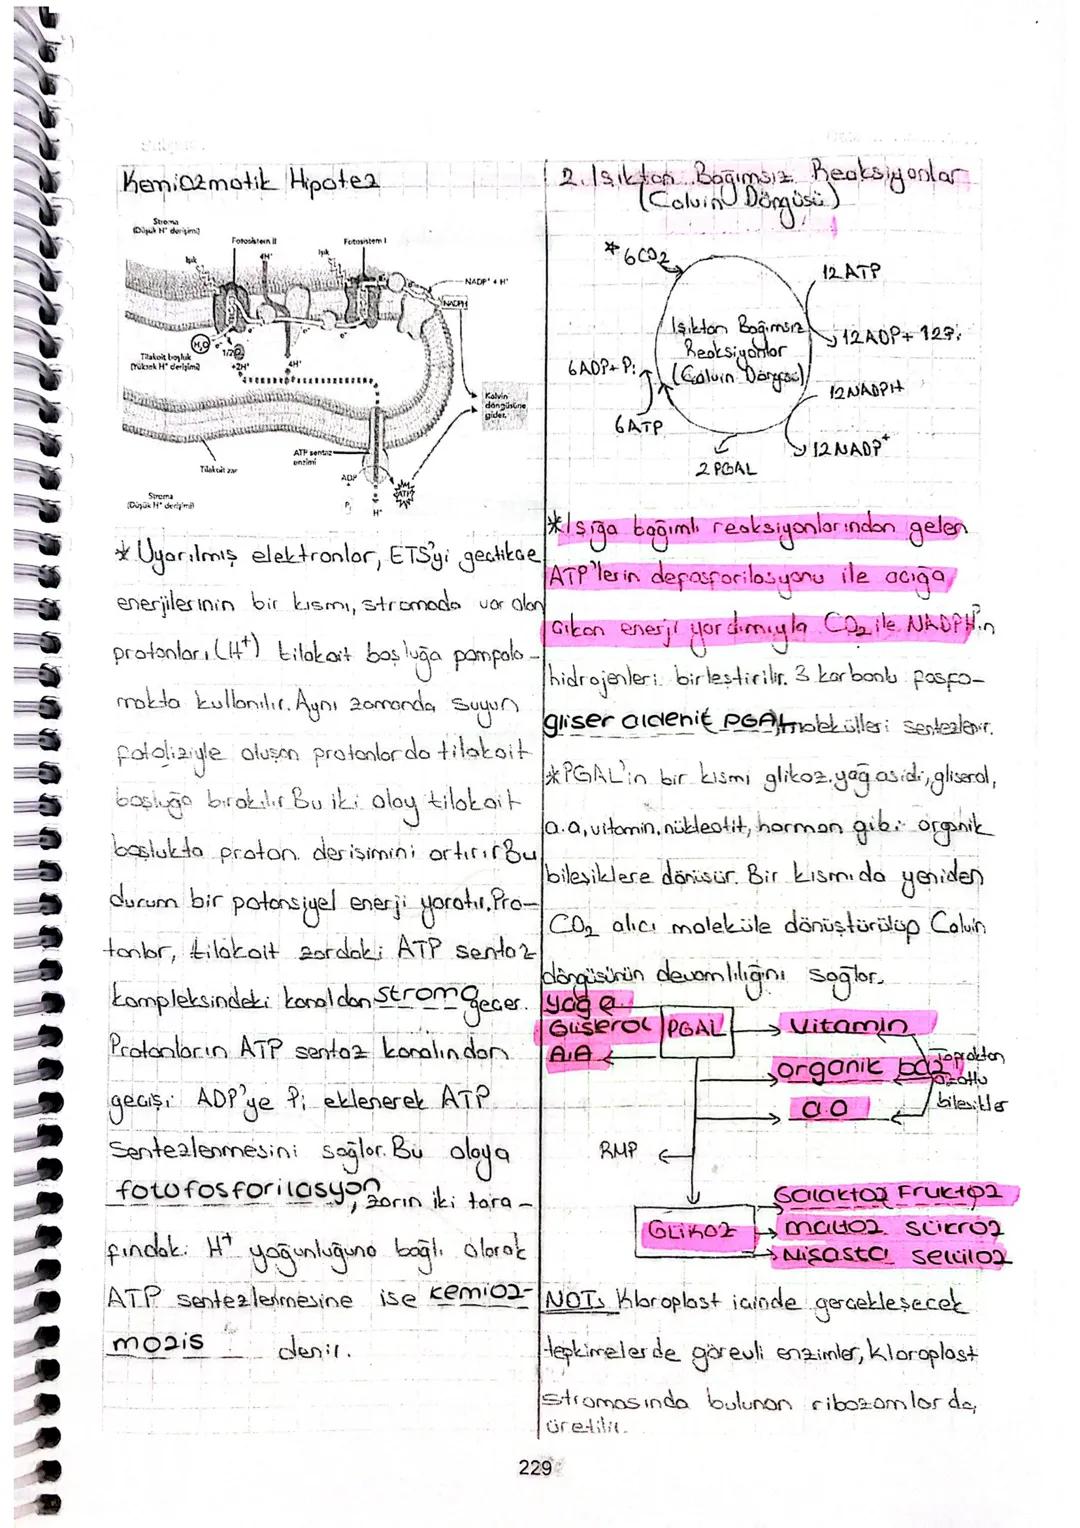 Kemiozmotik Hipotez
Stroma
(Düşük H⁺ derişimi)
Fotosistem II
Fotosistem I
Işık
4H⁺
Işık
NADP⁺ + H⁺
NADPH
H₂O
e⁻
e⁻
e⁻
1/2O₂
+2H⁺
4H⁺
Tilakoit boşluk
(Yüksek H⁺ derişimi)
Kalvin
döngüsüne
gider.
ATP sentaz
enzimi
Tilakoit zar
ADP
ATP
Pᵢ
H⁺
Stroma
(Düşük H⁺ derişimi)
* Uyarılmış elektronlar, ETS'yi geçtikçe
enerjilerinin bir kısmı, stromada var olan
protonları (H⁺) tilakoit boşluğa pompala-
makta kullanılır. Aynı zamanda suyun
fotoliziyle oluşan protonlarda tilakoit
boşluğa bırakılır Bu iki olay tilakoit
boşlukta proton derişimini artırır Bu
durum bir potansiyel enerji yaratır. Pro-
tonlar, tilakoit zardaki ATP sentaz
kompleksindeki kanaldan stroma geçer.
Protonların ATP sentaz kanalından
geçişi ADP'ye Pi eklenerek ATP
sentezlenmesini sağlar. Bu olaya
fotofosforilasyon, zarın iki tara-
fındaki H⁺ yoğunluğuna bağlı olarak
ATP sentezlenmesine ise kemioz-
mozis denir.
2. Işıktan Bağımsız Reaksiyonlar
(Calvin Döngüsü)
* 6CO₂
12 ATP
Işıktan Bağımsız
Reaksiyonlar
(Calvin Döngüsü)
12ADP + 12Pi
6ADP+Pi
12NADPH
6ATP
12NADP⁺
2 PGAL
* Işığa bağımlı reaksiyonlarından gelen
ATP'lerin deposporilasyonu ile açığa
çıkan enerji yardımıyla CO₂ ile NADPH'ın
hidrojenleri birleştirilir. 3 karbonlu fosfo-
gliser aldehit PGAL molekülleri sentezlenir.
* PGAL'in bir kısmı glikoz, yağ asidi, gliseral,
a.a, vitamin, nükleotit, hormon gibi organik
bileşiklere dönüşür. Bir kısmı da yeniden
CO₂ alıcı moleküle dönüştürülüp Calvin
döngüsünün devamlılığını sağlar.
yağ a.
Gliserol
A.A
PGAL
Vitamin
organik baz
a.a
Topraktan
azotlu
bileşikler
RMP
GLİKOZ
Galaktoz Fruktoz
maltoz sükroz
Nişasta selüloz
NOT: Kloroplast içinde gerçekleşecek
tepkimelerde görevli enzimler, kloroplast
stromasında bulunan ribozomlarda,
üretilir.
229